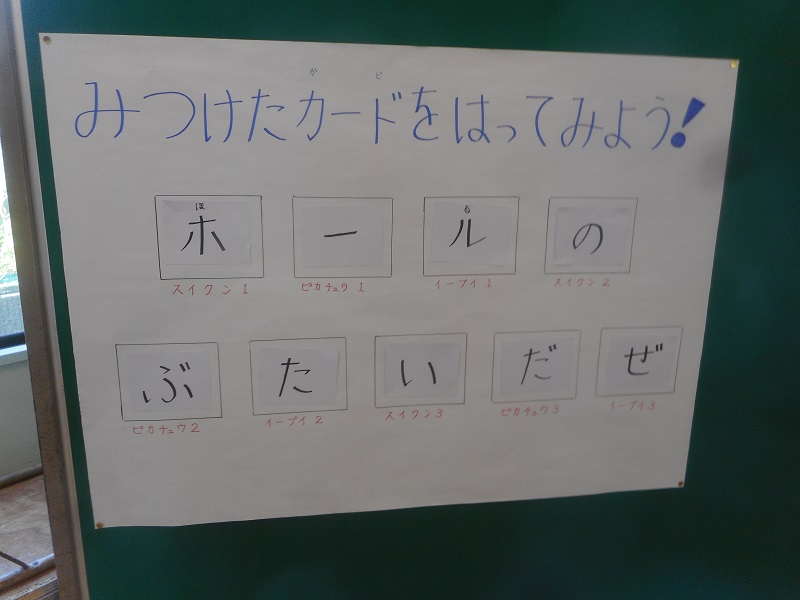 か ど
みつけたカードをはってみよう!
ほ る
ホ ー ル の
スイクン1 ピカチュウ1 イーブイ1 スイクン2
ぶ た い だ ぜ
ピカチュウ2 イーブイ2 スイクン3 ピカチュウ3 イーブイ3